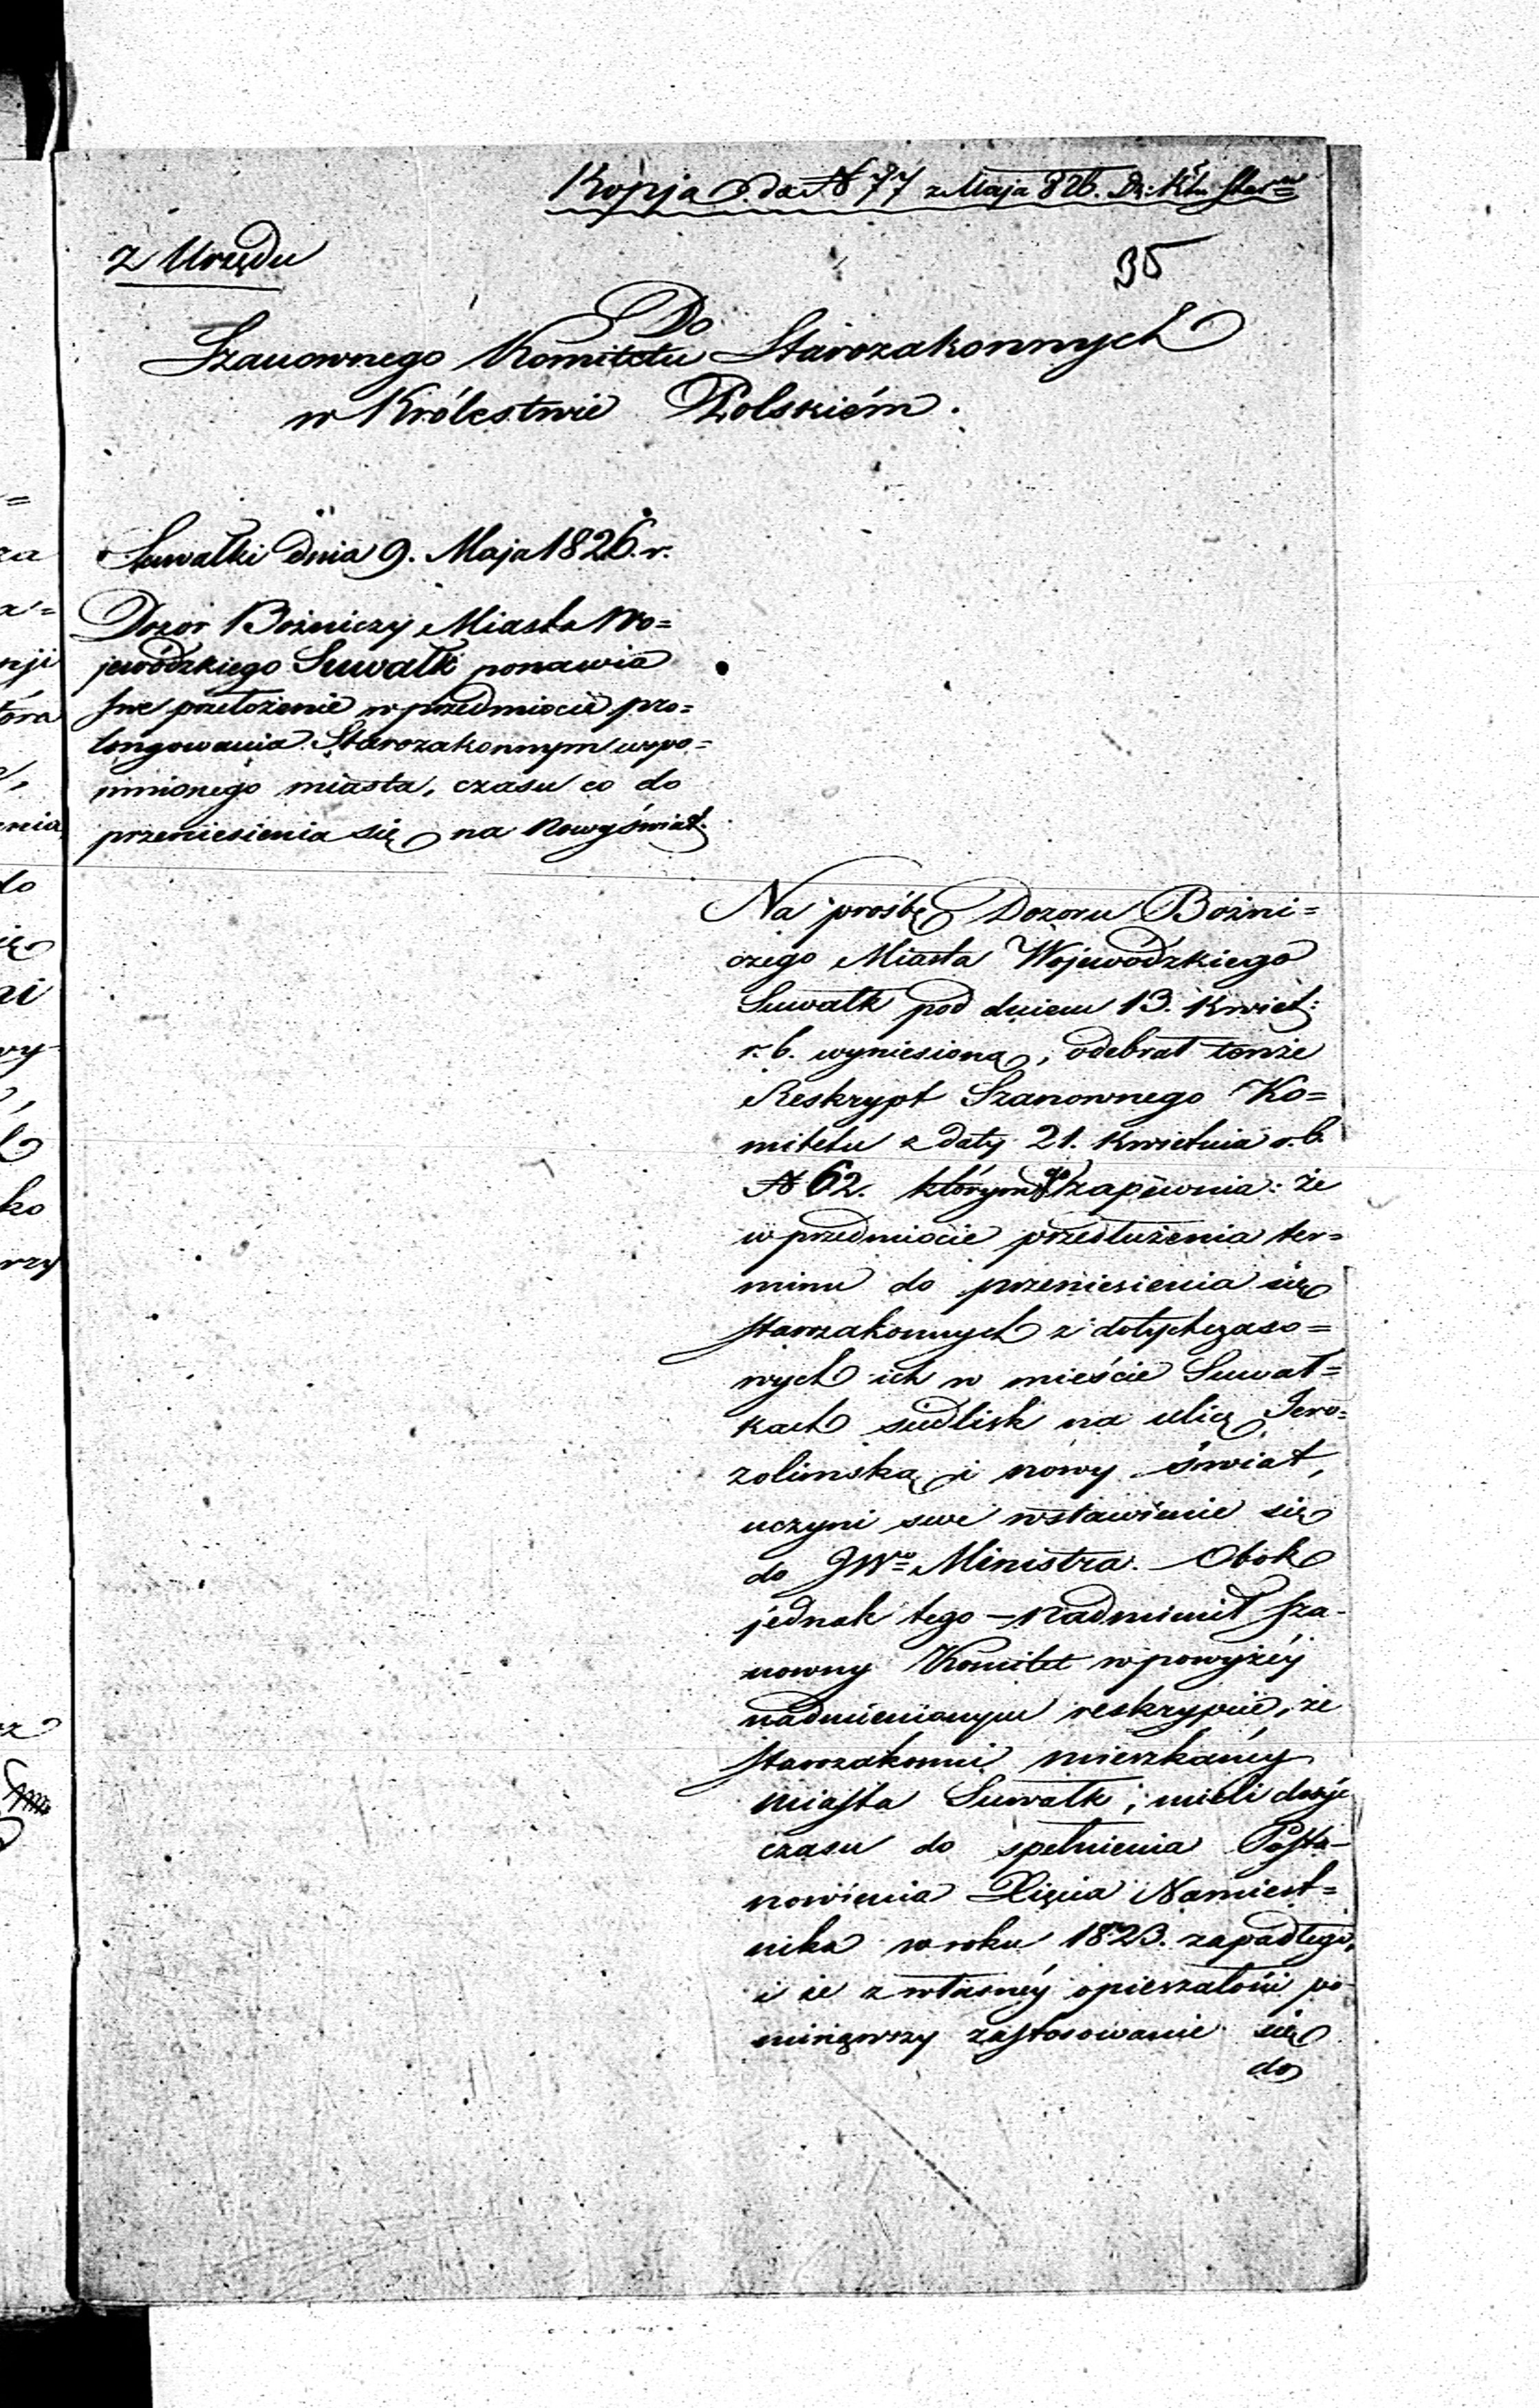 Kopja do № 77 z Maja 826. Dz: Ktu Star
35
z Urzędu
Do
Szanownego Komitetu Starozakonnych
w Królestwie Polskiém.
Suwałki dnia 9. Maja 1826. r.
Dozor Bożniczy Miasta Wo=
jewódzkiego Suwałk ponawia
swe przełożenie w przedmiocie pro=
longowania Starozakonnym wspo=
mnionego miasta, czasu co do
przeniesienia się na Nowyświat.
Na prośbę Dozoru Bożni=
czego Miasta Wojewódzkiego
Suwałk pod dniem 13. Kwiet:
r. b. wyniesioną, odebrał tenże
Reskrypt Szanownego Ko=
mitetu z daty 21. Kwietnia r. b.
№ 62. którym go zapewnia: że
w przedmiocie przedłużenia ter=
minu do przeniesienia się
starozakonnych z dotychczaso=
wych ich w mieście Suwał=
kach siedlisk na ulicę Jero=
zolimską i nowy świat,
uczyni swe wstawienie się
do JWo Ministra. Obok
jednak tego — Nadmienił sza-
nowny Komitet w powyżéy
nadmienionym reskrypcie, że
starozakonni mieszkańcy
miasta Suwałk; mieli dosyć
czasu do spełnienia Posta-
nowienia Xięcia Namiest=
nika w roku 1823. zapadłego,
i że z własnéy opieszałości po-
minąwszy zastosowanie się
do